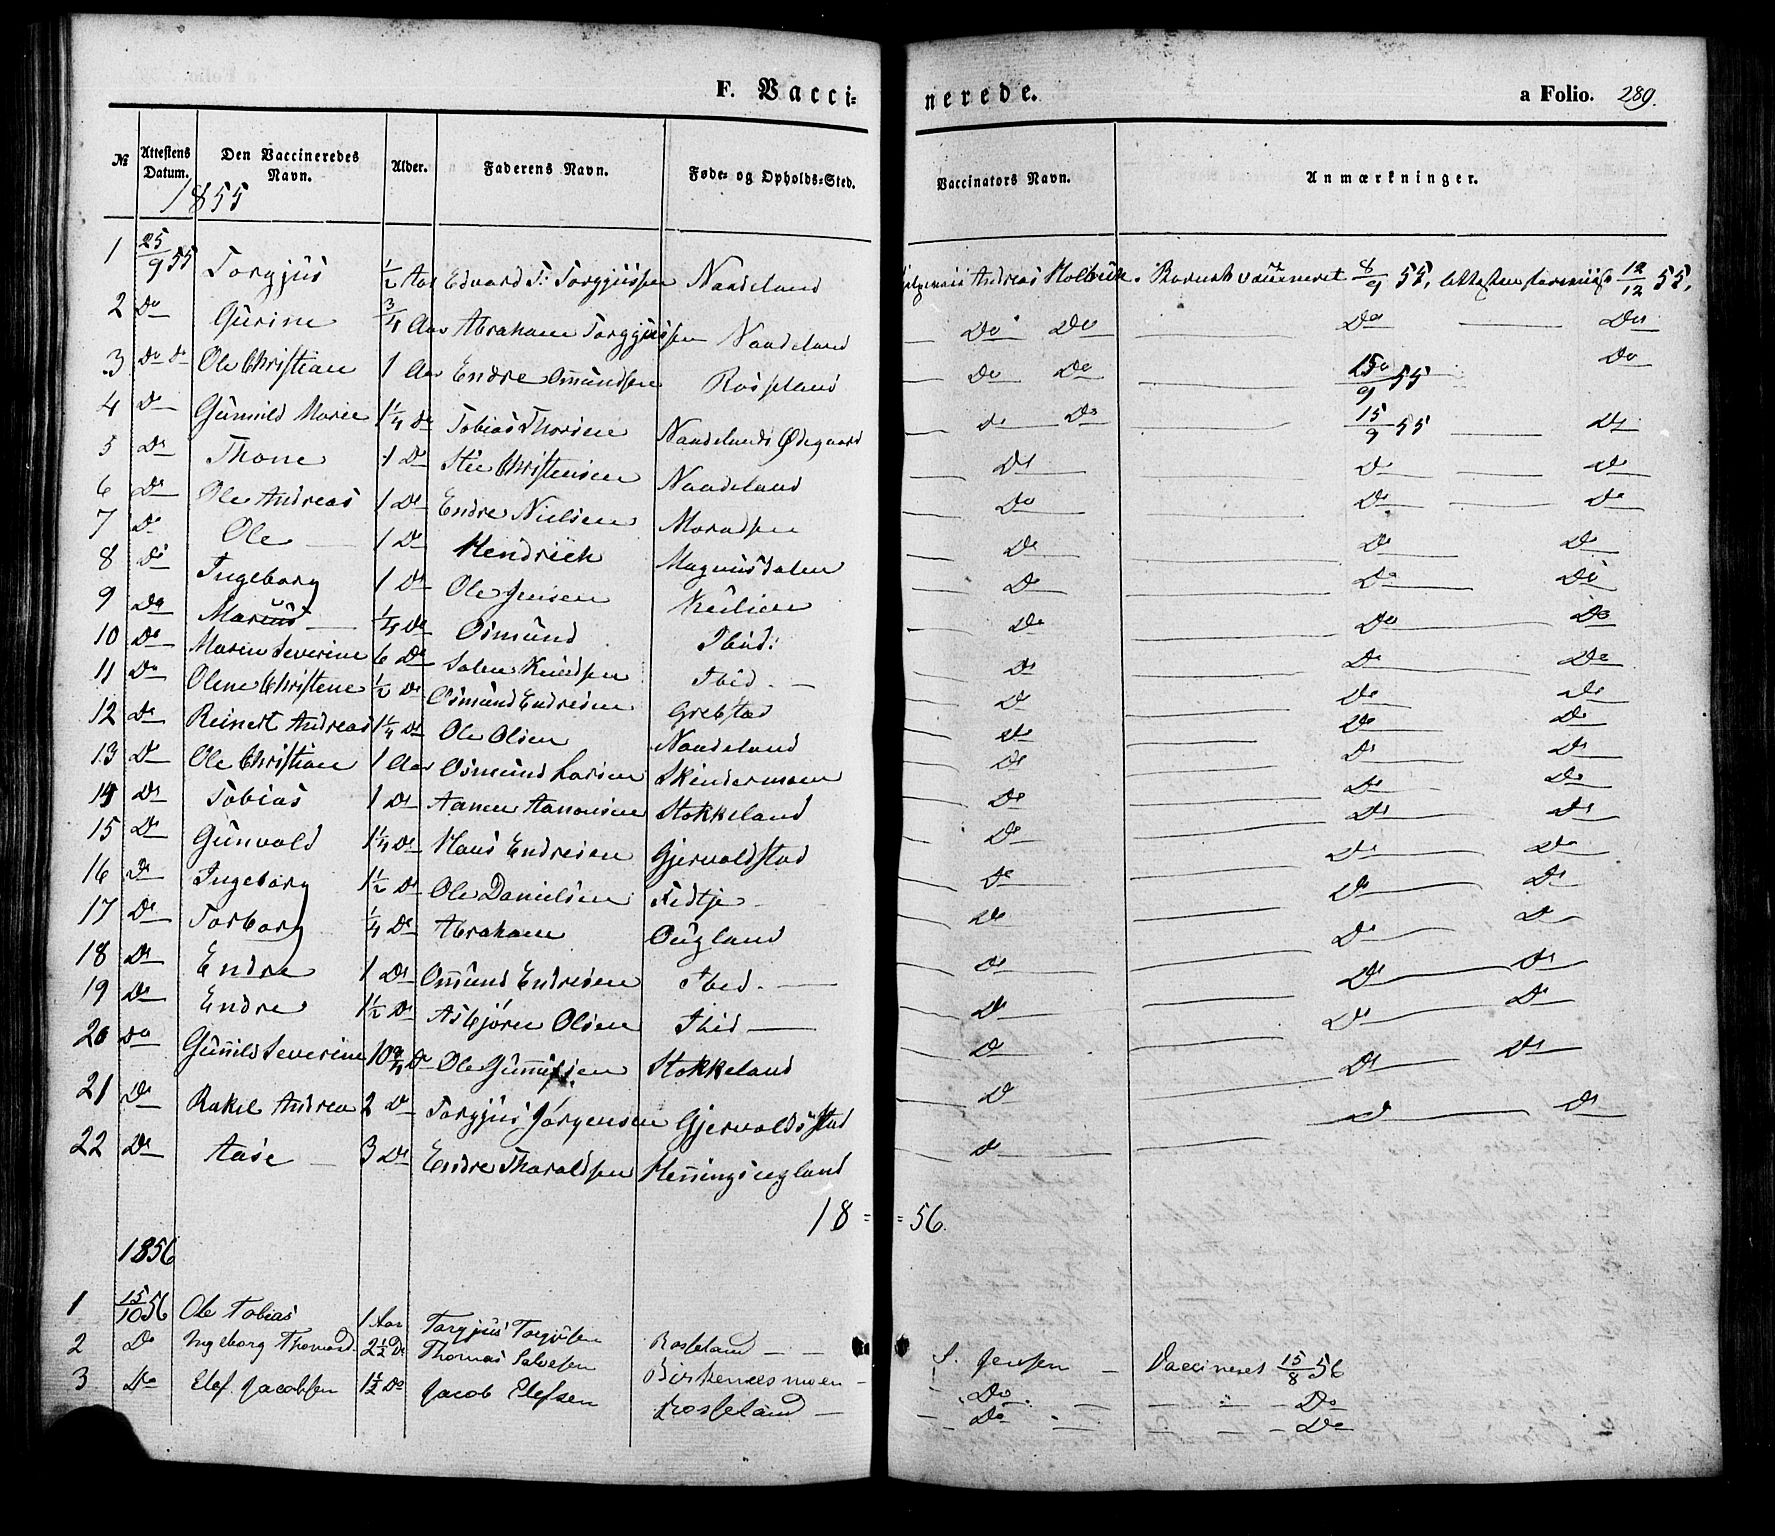 F. Vacci=
nerede.
a Folio. 289.
№ Attestens Datum. Den Vaccineredes Navn. Alder. Faderens Navn. Føde- og Opholds-Sted. Vaccinators Navn. Anmærkninger.
1855
1 25/9 55 Torgjus 1/2 Aar Edvard T: Torgjussen Naadeland Andreas Holbæk. Barnet vaccineret 8/9 55, 12/12 55,
2 Do Gurine 3/4 Aar Abraham Torgjussen Naadeland Do Do Do Do
3 Do Do Ole Christian 1 Aar Endre Osmundsen Rosseland Do Do 15/9 55 Do
4 Do Gunnild Marie 1 1/4 Do Tobias Thorsen Naadelands Ødegaard Do Do 15/9 55 Do
5 Do Thone 1 Do Christensen Naadeland Do Do Do
6 Do Ole Andreas 1 Do Endre Nielsen Do Do Do
7 Do Ole 1 Do Hendrich Magnusdalen Do Do Do
8 Do Ingeborg 1 Do Ole Jensen Do Do Do
9 Do Marcus 1/4 Do Osmund Ibid: Do Do Do
10 Do Maren Severine 6 Do Salve Knudsen Ibid. Do Do Do
11 Do Olene Christene 1/2 Do Osmund Endresen Grebstad Do Do Do
12 Do Reinert Andreas 1 1/4 Do Ole Olsen Naadeland Do Do Do
13 Do Ole Christian 1 Aar Osmund Larsen Skindermoen Do Do Do
14 Do Tobias 1 Do Aanen Aanonsen Stokkeland Do Do Do
15 Do Gunvald 1 1/4 Do Hans Endresen Gjervoldstad Do Do Do
16 Do Ingeborg 1 1/2 Do Ole Danielsen Fidtje Do Do Do
17 Do Torborg 1/4 Do Abraham Ougland Do Do Do
18 Do Endre 1 Do Osmund Endresen Ibid. Do Do Do
19 Do Endre 1 1/2 Do Asbjøren Olsen Ibid Do Do Do
20 Do Gunnild Severine 10 3/4 Do Ole Stokkeland Do Do Do
21 Do Rakel Andrea 2 Do Torgjus Jørgensen Gjervoldsstad Do Do Do
22 Do Aase 3 Do Endre Tharaldsen Henningsugland Do Do Do
18 = = 56.
1856
1 15/10 56 Ole Tobias 1 Aar Torgjus Torgjusen Rosseland S. Jensen Vaccineret 15/8 56
2 Do Ingeborg Thomasd. 2 1/2 Do Thomas Salvesen Birkenesmoen Do. Do
3 Do Elef Jacobsen 1 1/2 Do Jacob Elefsen Rosseland Do Do